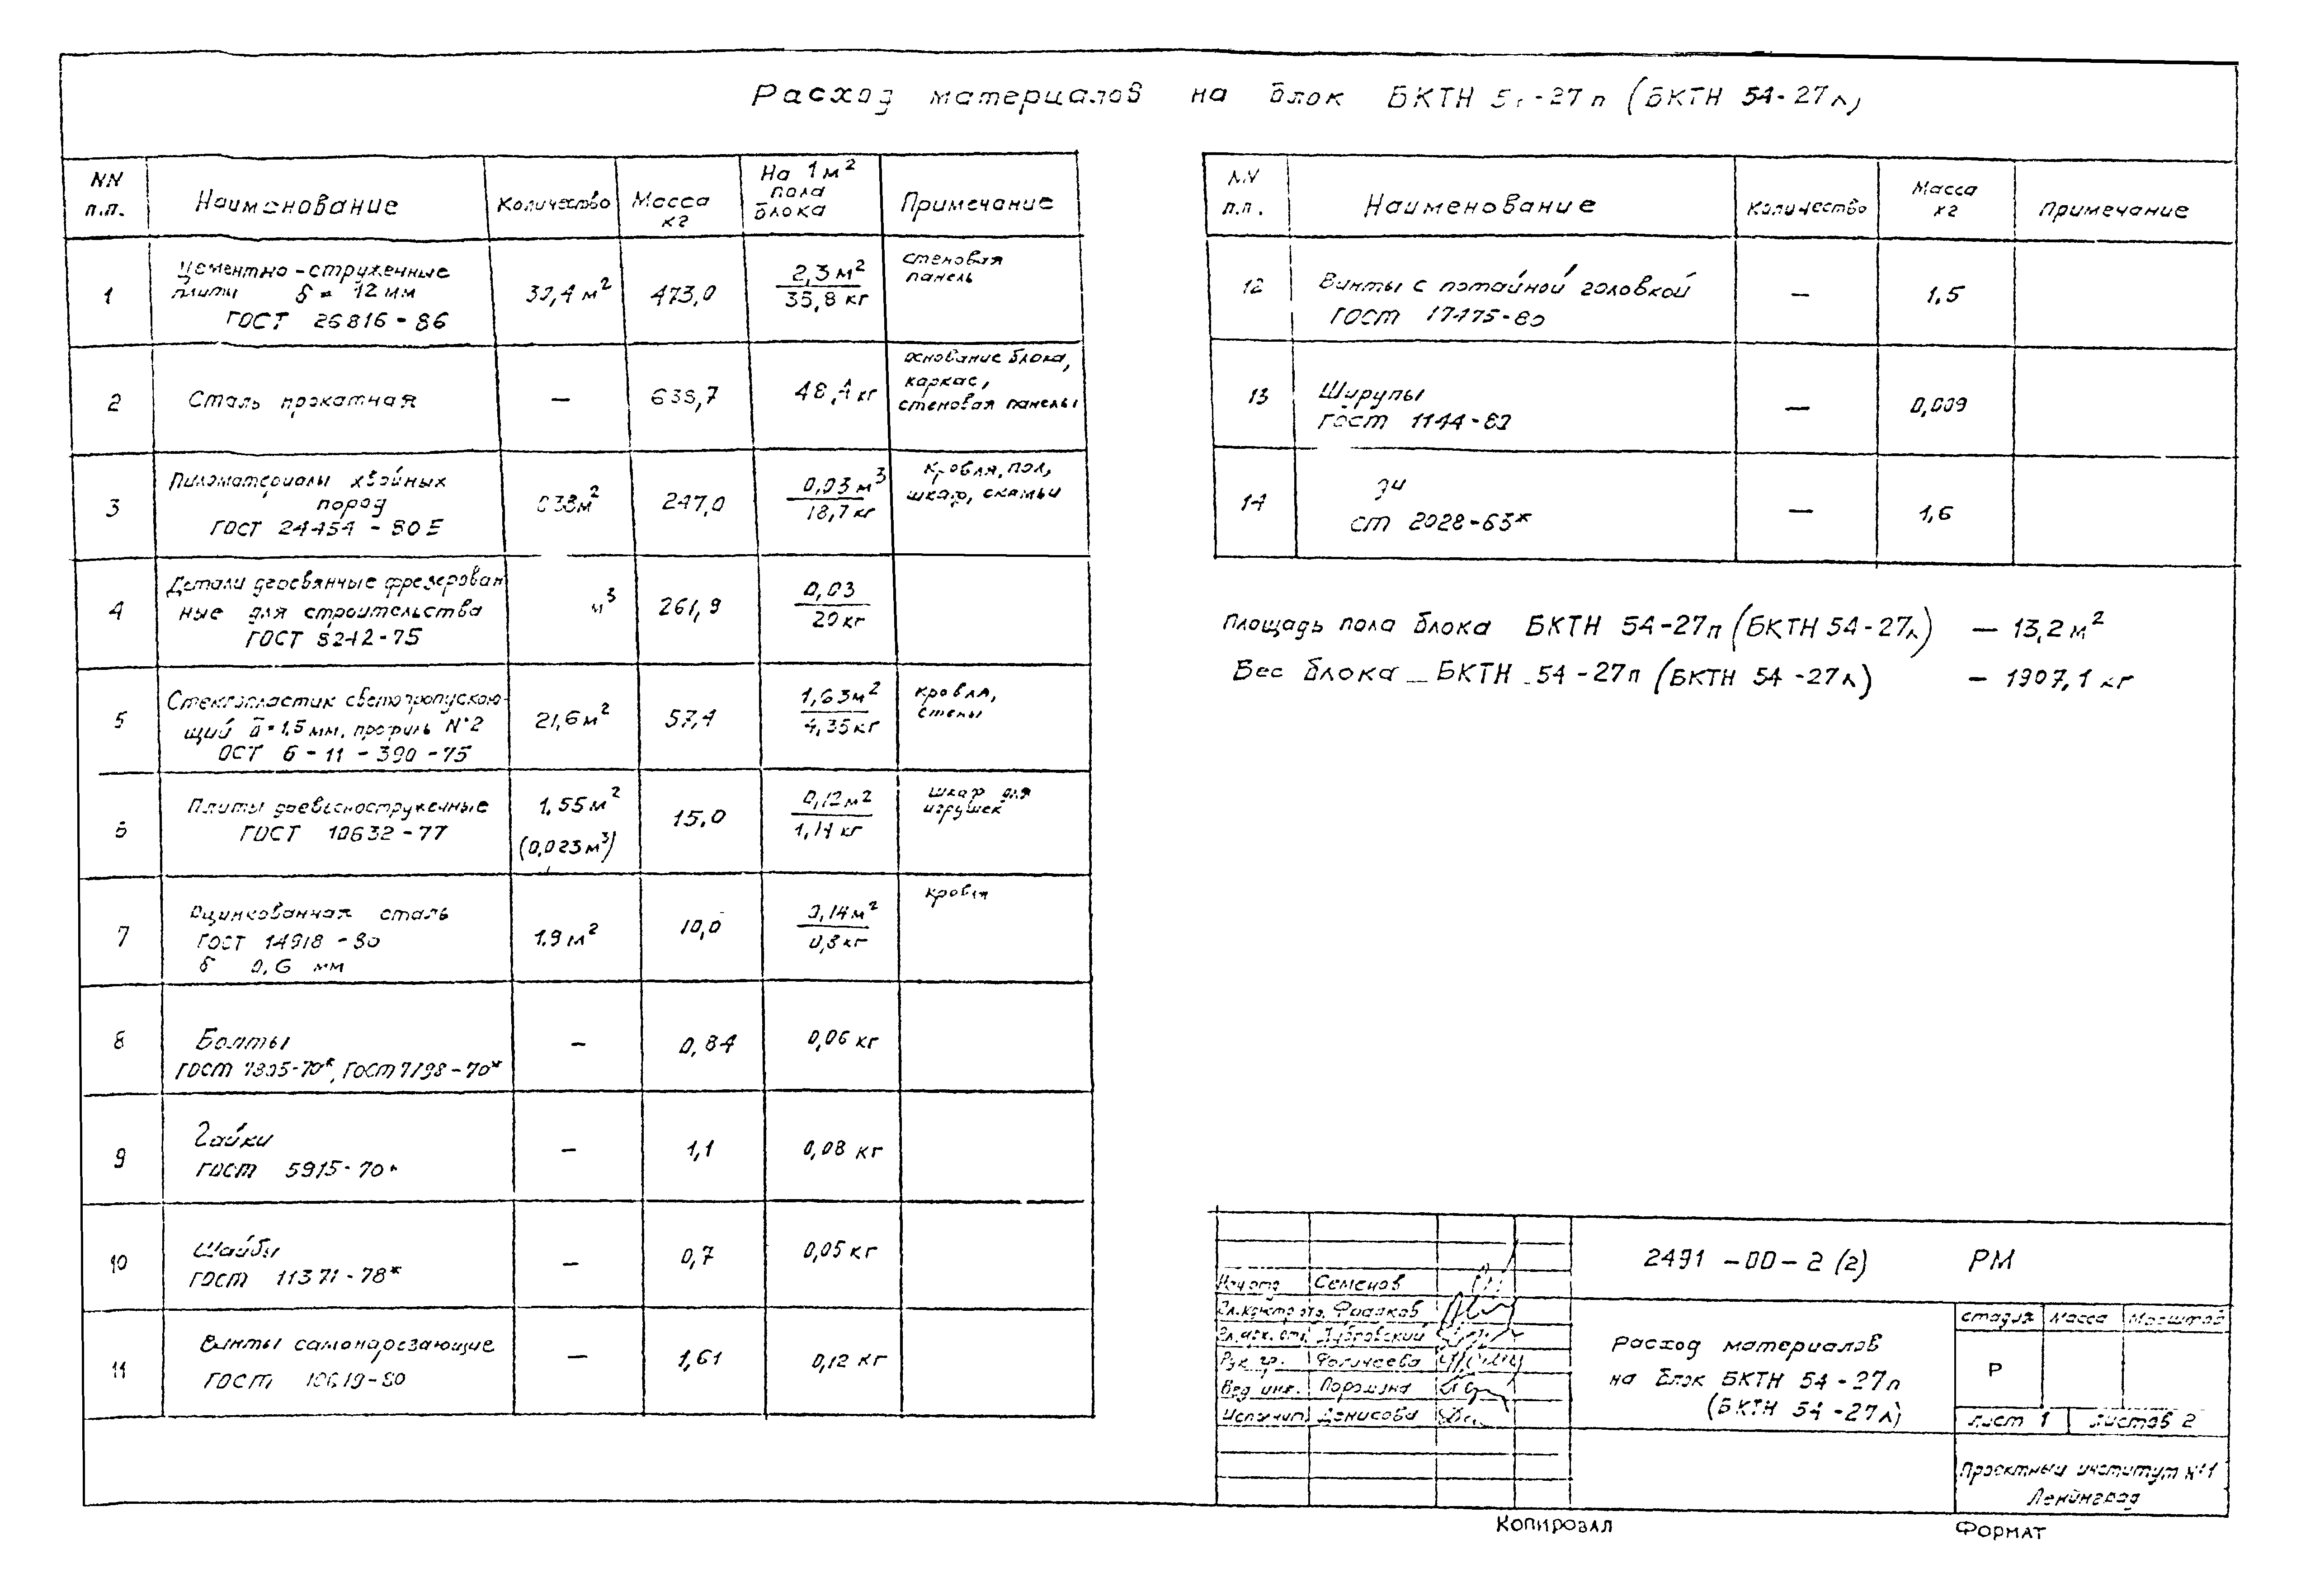 Расход материалов на блок БКТН -27п (БКТН 54-27л)
NN
п.п.
Наименование
Количество
Масса
кг
На 1м²
пола
блока
Примечание
1
Цементно-стружечные
плиты δ = 12 мм
ГОСТ 26816-86
м²
473,0
2,3 м²
35,8 кг
стеновая
панель
2
Сталь прокатная
—
48,4 кг
основание блока,
каркас,
стеновая панель
3
Пиломатериалы хвойных
пород
ГОСТ 24454-80Е
247,0
0,03 м³
18,7 кг
кровля, пол,
шкаф, скамьи
4
Детали деревянные фрезерован
ные для строительства
ГОСТ 8242-75
м³
261,9
0,03
20 кг
5
Стеклопластик светопропускаю-
щий δ=1,5 мм, профиль №2
ОСТ 6-11-390-75
21,6 м²
57,4
1,63 м²
4,35 кг
кровля,
стены
6
Плиты древесностружечные
ГОСТ 10632-77
1,55 м²
(0,023 м³)
15,0
0,12 м²
1,14 кг
шкаф для
игрушек
7
Оцинкованная сталь
ГОСТ 14918-80
δ 0,6 мм
1.9 м²
10,0
0,14 м²
0,8 кг
кровля
8
Болты
ГОСТ 7805-70*, ГОСТ 7798-70*
—
0,84
0,06 кг
9
Гайки
ГОСТ 5915-70*
—
1,1
0,08 кг
10
Шайбы
ГОСТ 11371-78*
—
0,7
0,05 кг
11
Винты самонарезающие
ГОСТ -80
—
1,61
0,12 кг
NN
п.п.
Наименование
Количество
Масса
кг
Примечание
12
Винты с потайной головкой
ГОСТ 17475-80
—
1,5
13
Шурупы
ГОСТ 1144-80
—
0,009
14
ст 2028-63*
—
1,6
Площадь пола блока БКТН 54-27п (БКТН 54-27л) — 13,2 м²
Вес блока БКТН 54-27п (БКТН 54-27л) — 1907,1 кг
2491-00-2 (2) РМ
Нач.отд. Семенов
Гл.констр.отд. Фралков
Гл.арх.отд. Дубровский
Рук. гр.
Вед. инж.
Исполнит. Денисова
Расход материалов
на блок БКТН 54-27п
(БКТН 54-27л)
стадия Масса Масштаб
Р
лист 1 листов 2
Проектный институт №1
Ленинград
Копировал Формат